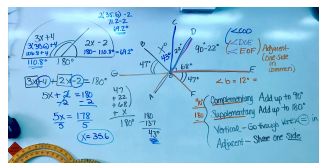 2(35.6) -2
71.2-2
69.2°
3x+4
3(35.6)+4
106.8+4
110.8°
2x-2
180-110.8=69.2°
180°
3x+4 + 2x-2 = 180°
5x + 2 = 180
-2 -2
5x = 178
5 5
x = 35.6
47
+ 22
+ 68
+ x
180°
180
-137
43°
A
B
C
D
E
F
G
x°
43°
22°
68°
47°
90-22°
<COD
<DOE
<EOF
Adjacent
(one side in common)
<b = 12°
90° Complementary Add up to 90°
180 Supplementary Add up to 180°
Vertical - Go through vertex
Adjacent - Share one side